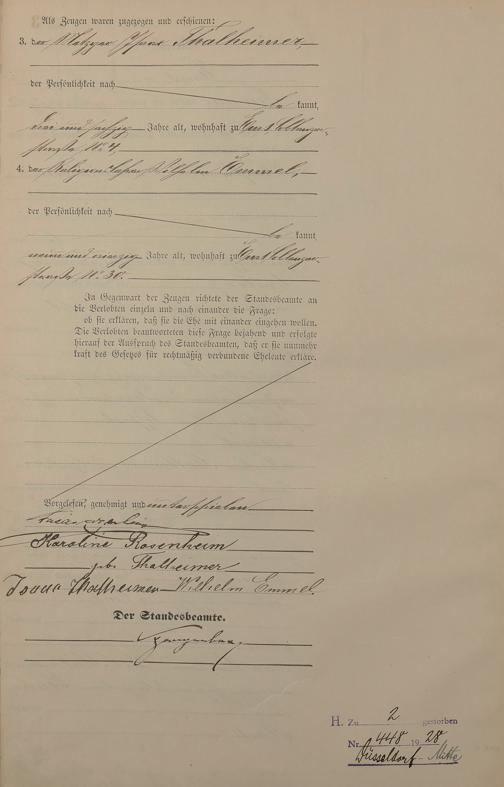 Als Zeugen waren zugezogen und erschienen:
3. der Metzger Isaac Thalheimer,
der Persönlichkeit nach
be kannt,
Jahre alt, wohnhaft zu
straße No 4,
4. der Wilhelm Emmel,
der Persönlichkeit nach
be kannt,
neun und zwanzig Jahre alt, wohnhaft zu
straße No 30.
In Gegenwart der Zeugen richtete der Standesbeamte an
die Verlobten einzeln und nach einander die Frage:
ob sie erklären, daß sie die Ehe mit einander eingehen wollen.
Die Verlobten beantworteten diese Frage bejahend und erfolgte
hierauf der Ausspruch des Standesbeamten, daß er sie nunmehr
kraft des Gesetzes für rechtmäßig verbundene Eheleute erkläre.
Vorgelesen, genehmigt und unterschrieben
Karoline Rosenheim
geb. Thalheimer
Isaac Thalheimer Wilhelm Emmel.
Der Standesbeamte.
H. Zu 2 gestorben
Nr. 448 1928
Düsseldorf-Mitte